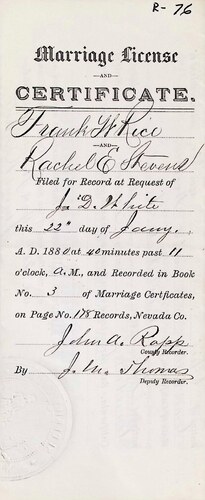 R-76
Marriage License
—AND—
CERTIFICATE.
Frank W Rice
—AND—
Rachel E Stevens
Filed for Record at Request of
J. D. White
this 22" day of Jany.
A. D. 1880 at 40 minutes past 11
o'clock, A. M., and Recorded in Book
No. 3 of Marriage Certficates,
on Page No. 178 Records, Nevada Co.
John A. Rapp
County Recorder.
By J. M. Thomas
Deputy Recorder.